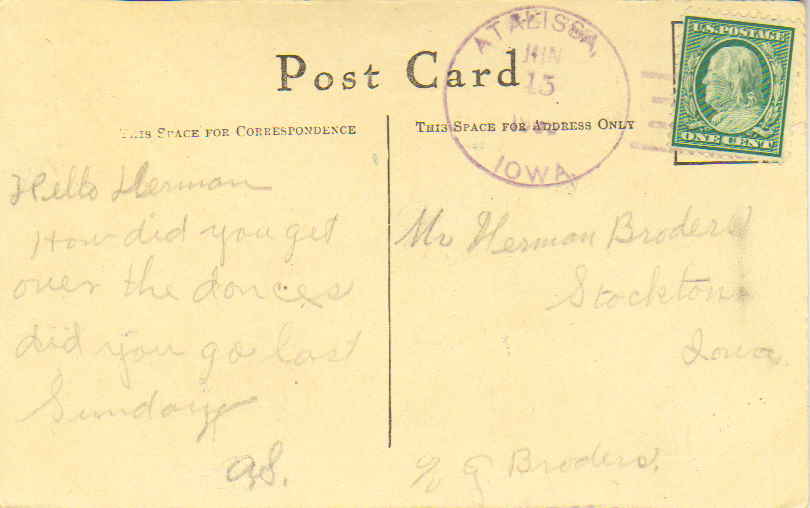 ATALISSA,
JUN
15
IOWA.
U.S. POSTAGE
ONE CENT
Post Card
THIS SPACE FOR CORRESPONDENCE
THIS SPACE FOR ADDRESS ONLY
Hello Herman
How did you get
over the dances
did you go last
Sunday
A.S.
Mr Herman Broders
Stockton
Iowa
c/o G Broders.